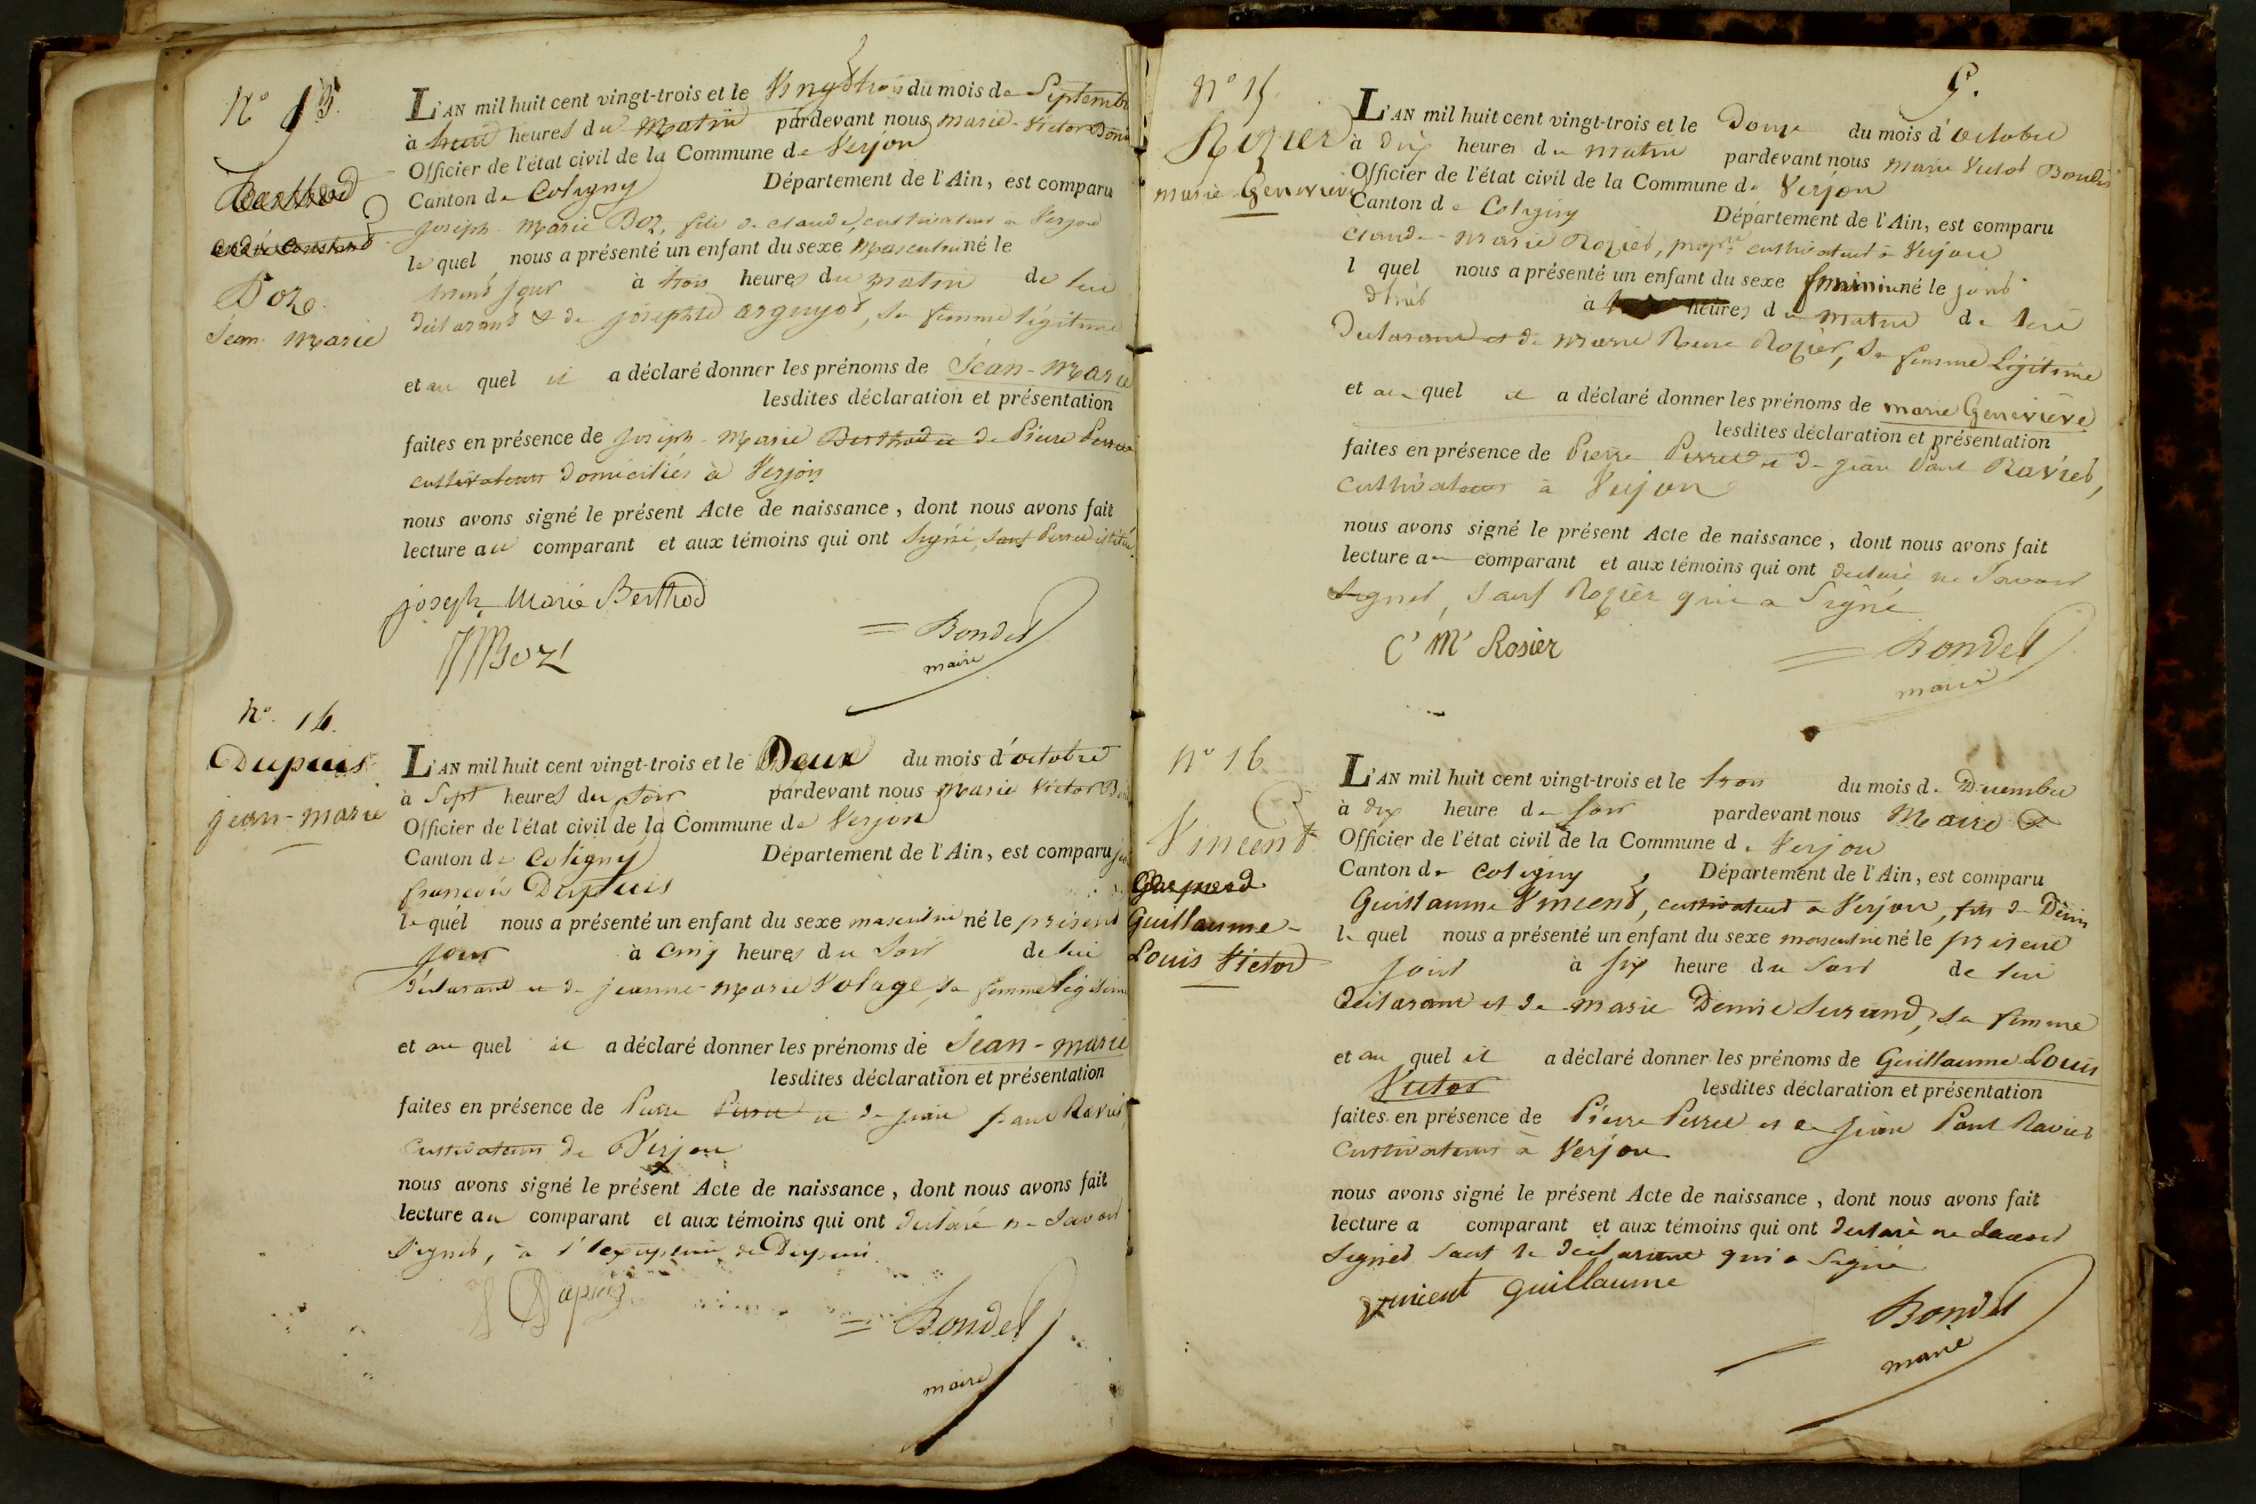 N° 13.
Berthod
Boz
Jean Marie
L'AN mil huit cent vingt-trois et le Vingt trois du mois de Septembre
à huit heures du Matin pardevant nous marie-Victor Bon
Officier de l'état civil de la Commune de Verjon
Canton de Coligny Département de l'Ain, est comparu
Joseph Marie Boz, fils de Claude, cultivateur à Verjon
le quel nous a présenté un enfant du sexe Masculin né le
jour à trois heures du matin de lui
déclarant & de josephte arguyot, sa femme légitime
et au quel il a déclaré donner les prénoms de Jean-Marie
lesdites déclaration et présentation
faites en présence de Joseph-Marie Berthod et de Pierre Perret
cultivateurs domiciliés à Verjon
nous avons signé le présent Acte de naissance, dont nous avons fait
lecture au comparant et aux témoins qui ont signé, sauf Perret
joseph Marie Berthod
JMBoz
Bondet
maire
N° 14.
Dupuis
jean-marie
L'AN mil huit cent vingt-trois et le Deux du mois d'octobre
à Sept heures du soir pardevant nous Marie Victor Bon
Officier de l'état civil de la Commune de Verjon
Canton de Coligny Département de l'Ain, est comparu
françois Dupuis
le quel nous a présenté un enfant du sexe masculin né le présent
jour à cinq heures du Soir de lui
déclarant et de jeanne-Marie Volage, sa femme légitime
et au quel il a déclaré donner les prénoms de Jean-marie
lesdites déclaration et présentation
faites en présence de Pierre Perret et de jean paul Ravier,
cultivateurs de Verjon
nous avons signé le présent Acte de naissance, dont nous avons fait
lecture au comparant et aux témoins qui ont déclaré ne Savoir
Signer, à l'exception de Dupuis.
Dapuis
Bondet
maire
9.
N° 15.
Rozier
marie Genevieve
L'AN mil huit cent vingt-trois et le Douze du mois d'octobre
à dix heures du matin pardevant nous Marie Victor Bondet
Officier de l'état civil de la Commune de Verjon
Canton de Coligny Département de l'Ain, est comparu
Claude-Marie Rozier, propre cultivateur à Verjon
l quel nous a présenté un enfant du sexe féminin né le jour
d'hier à heures du matin de lui
Déclarant et de Marie Rozier, sa femme Légitime
et au quel il a déclaré donner les prénoms de marie Genevieve
lesdites déclaration et présentation
faites en présence de Pierre Perret et de jean Paul Ravier,
cultivateurs à Verjon
nous avons signé le présent Acte de naissance, dont nous avons fait
lecture au comparant et aux témoins qui ont déclaré ne Savoir
signer, sauf Rozier qui a Signé
C' M' Rosier
Bondet
maire
N° 16
Vincent
Gaspard
Guillaume-
Louis Victor
L'AN mil huit cent vingt-trois et le trois du mois de Décembre
à dix heure de soir pardevant nous Maire &
Officier de l'état civil de la Commune de Verjon
Canton de Coligny, Département de l'Ain, est comparu
Guillaume Vincent, cultivateur à Verjon, fils de Denis
le quel nous a présenté un enfant du sexe masculin né le présent
jour à six heure du soir de lui
déclarant et de Marie Denise, sa femme
et au quel il a déclaré donner les prénoms de Guillaume Louis
Victor lesdites déclaration et présentation
faites en présence de Pierre Perret et de Jean Paul Ravier
cultivateurs à Verjon
nous avons signé le présent Acte de naissance, dont nous avons fait
lecture a comparant et aux témoins qui ont déclaré ne Savoir
signer sauf le déclarant qui a Signé
vincent guillaume
Bondet
maire